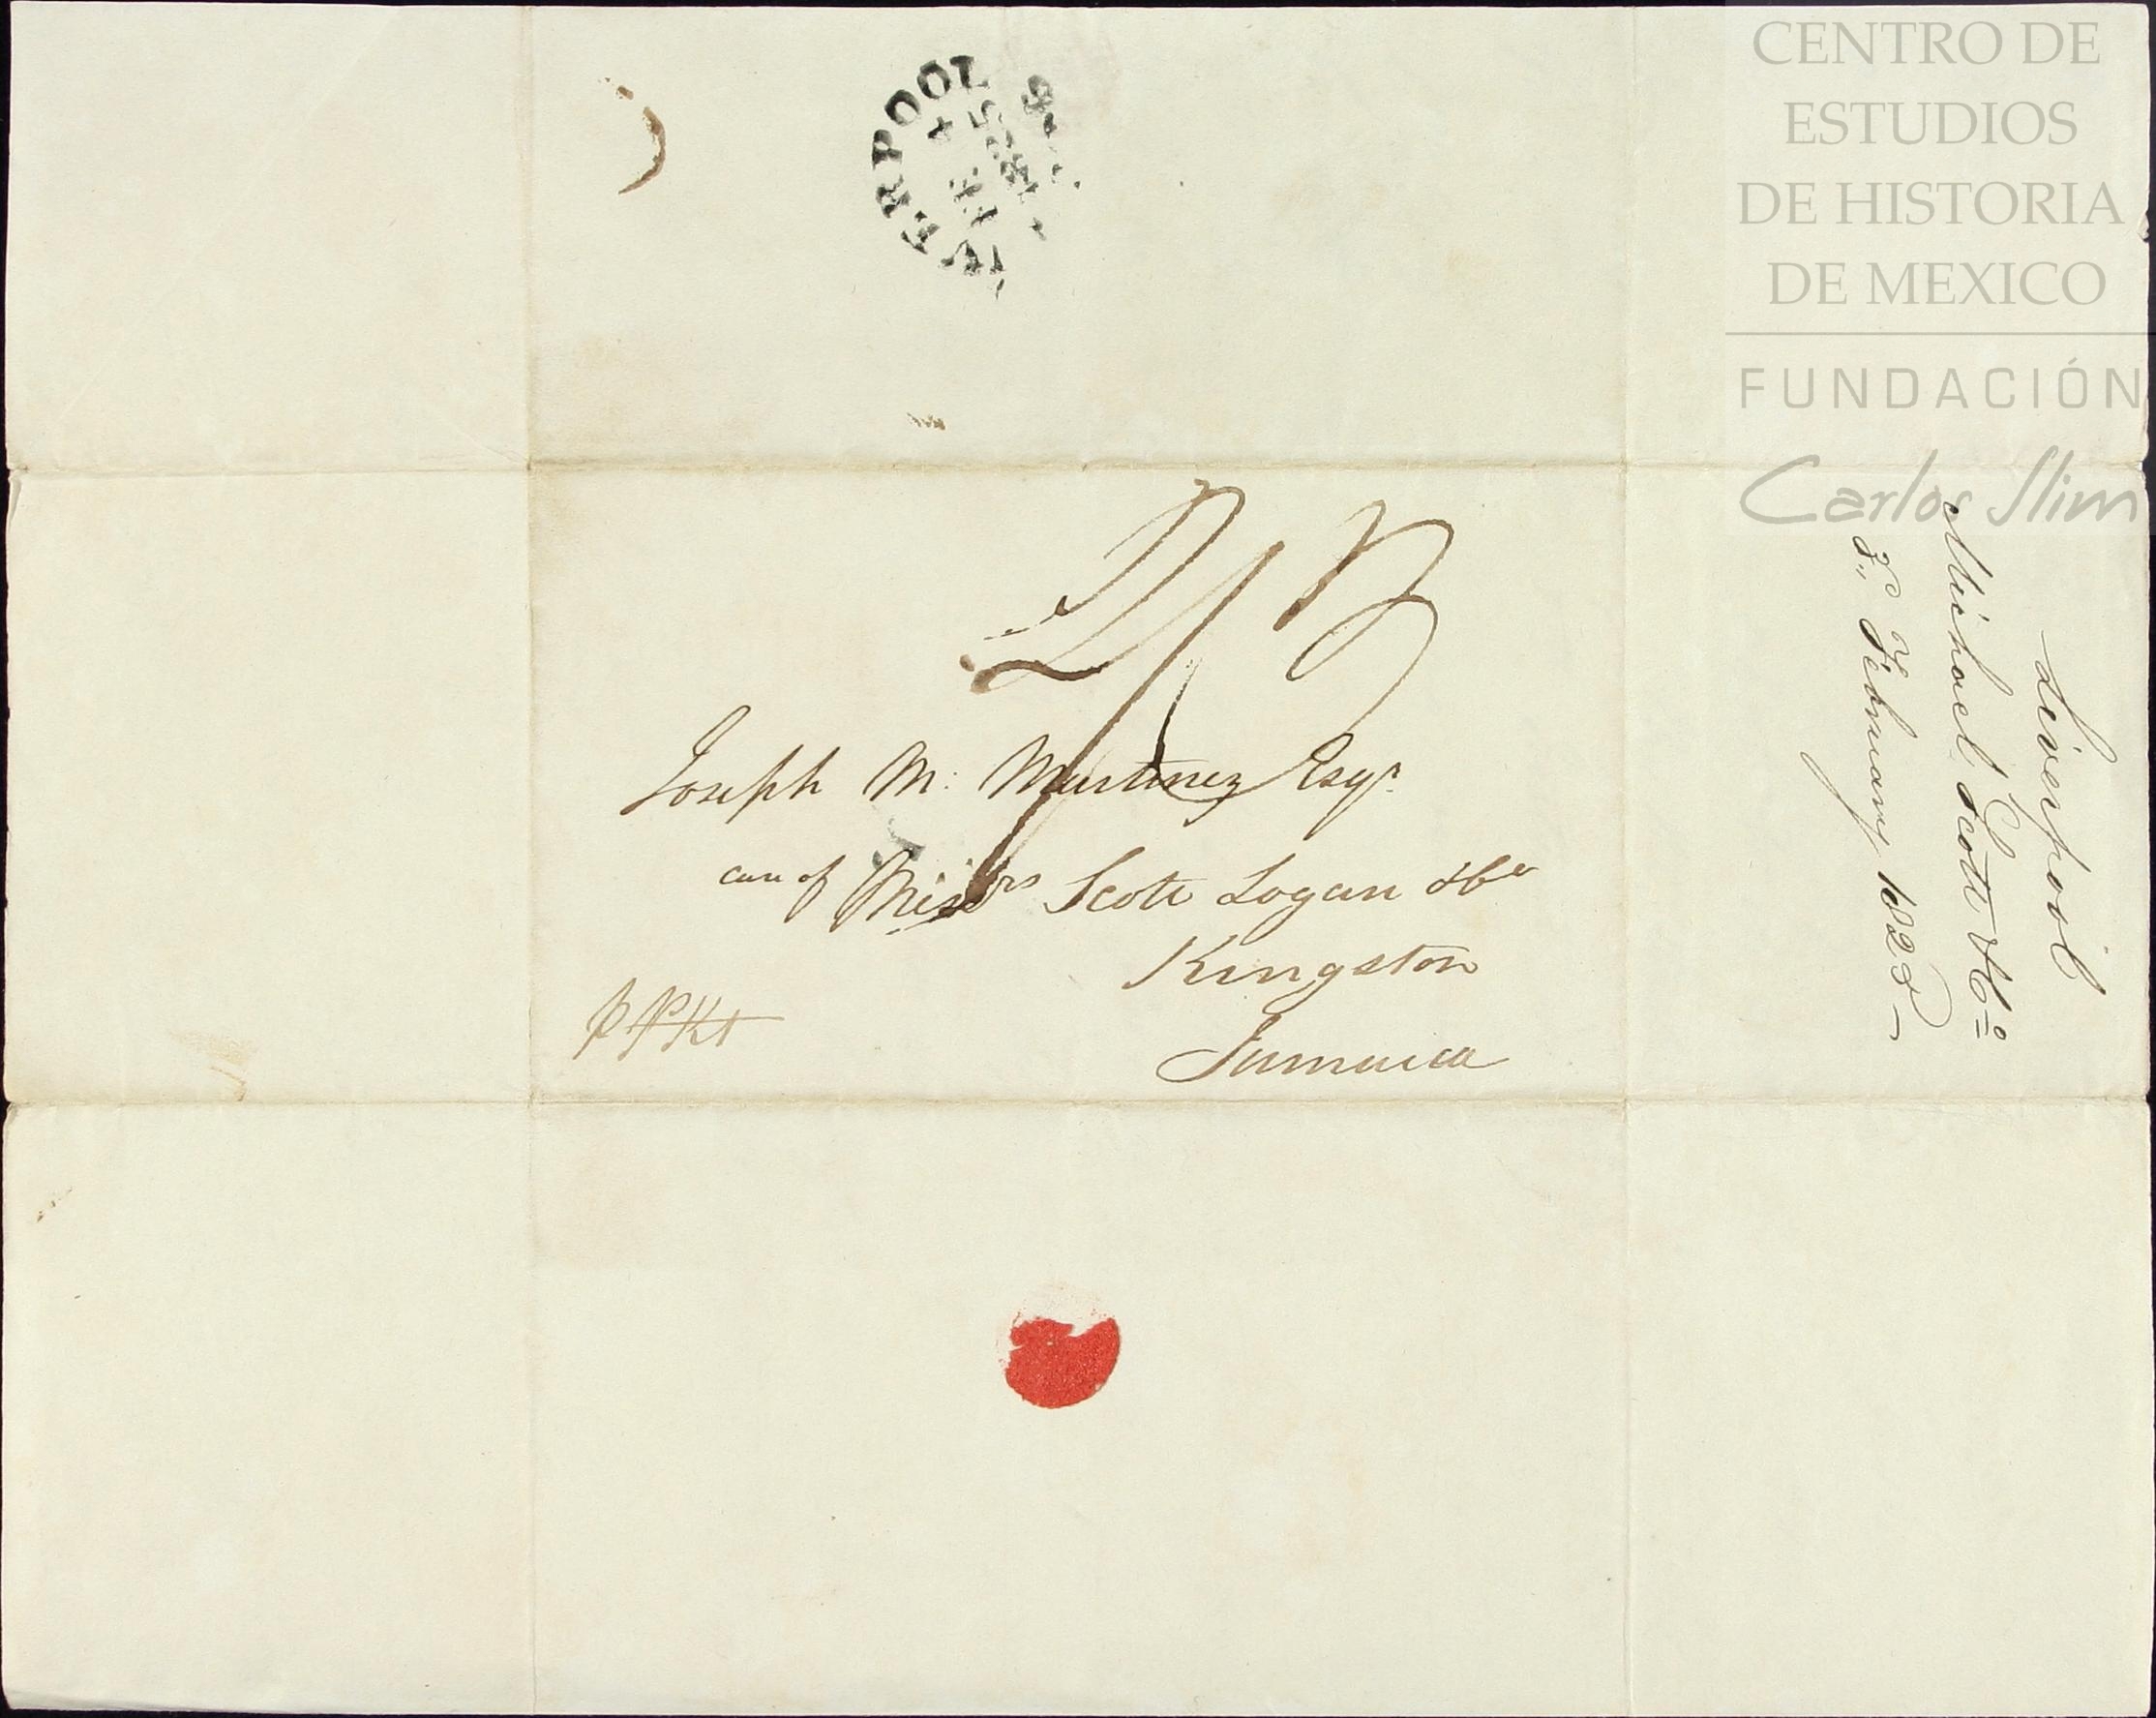 LIVERPOOL
FE 4
CENTRO DE
ESTUDIOS
DE HISTORIA
DE MEXICO
FUNDACIÓN
Carlos Slim
2/3
Joseph M. Martinez Esqr.
care of Messrs Scott Logan & Co
Kingston
Jamaica
p Pkt
Liverpool
Michael Scott & Co
3,, February 1825